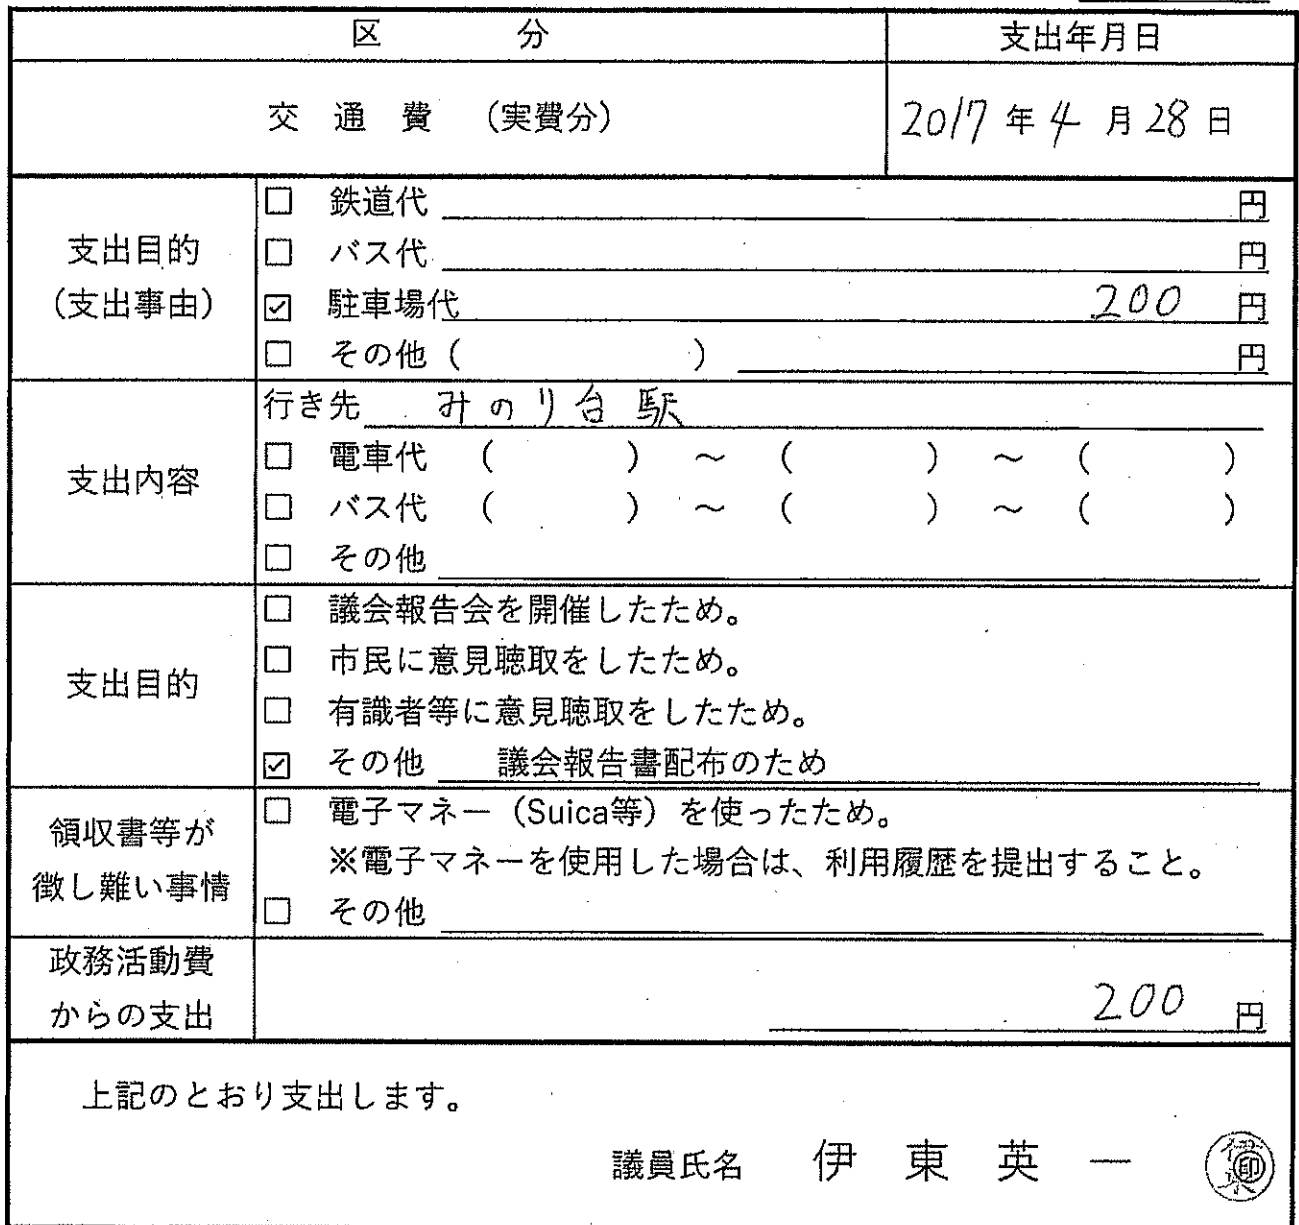 区 分 支出年月日
交 通 費 (実費分) 2017 年 4 月 28 日
支出目的
(支出事由)
☐ 鉄道代 円
☐ バス代 円
☑ 駐車場代 200 円
☐ その他 ( ) 円
支出内容
行き先 みのり台駅
☐ 電車代 ( ) ～ ( ) ～ ( )
☐ バス代 ( ) ～ ( ) ～ ( )
☐ その他
支出目的
☐ 議会報告会を開催したため。
☐ 市民に意見聴取をしたため。
☐ 有識者等に意見聴取をしたため。
☑ その他 議会報告書配布のため
領収書等が
徴し難い事情
☐ 電子マネー (Suica等) を使ったため。
※電子マネーを使用した場合は、利用履歴を提出すること。
☐ その他
政務活動費
からの支出
200 円
上記のとおり支出します。
議員氏名 伊 東 英 一 ㊞
伊東